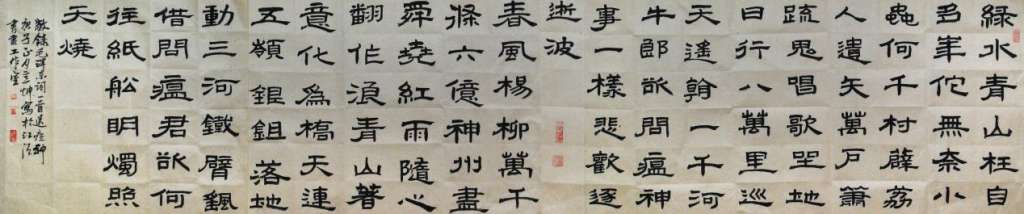 綠水青山枉自
多華佗無奈小
蟲何千村薜荔
人遺矢萬戶蕭
疏鬼唱歌坐地
日行八萬里巡
天遙一千河
牛郎欲問瘟神
事一樣悲歡逐
逝波
春風楊柳萬千
條六億神州盡
舜堯紅雨隨心
翻作浪青山著
意化為橋天連
五嶺銀鉏落地
動三河鐵臂
借問瘟君欲何
往紙船明燭照
天燒
敬錄毛澤東詞二首送瘟神
庚子正月坤寫於江
書畫工作室